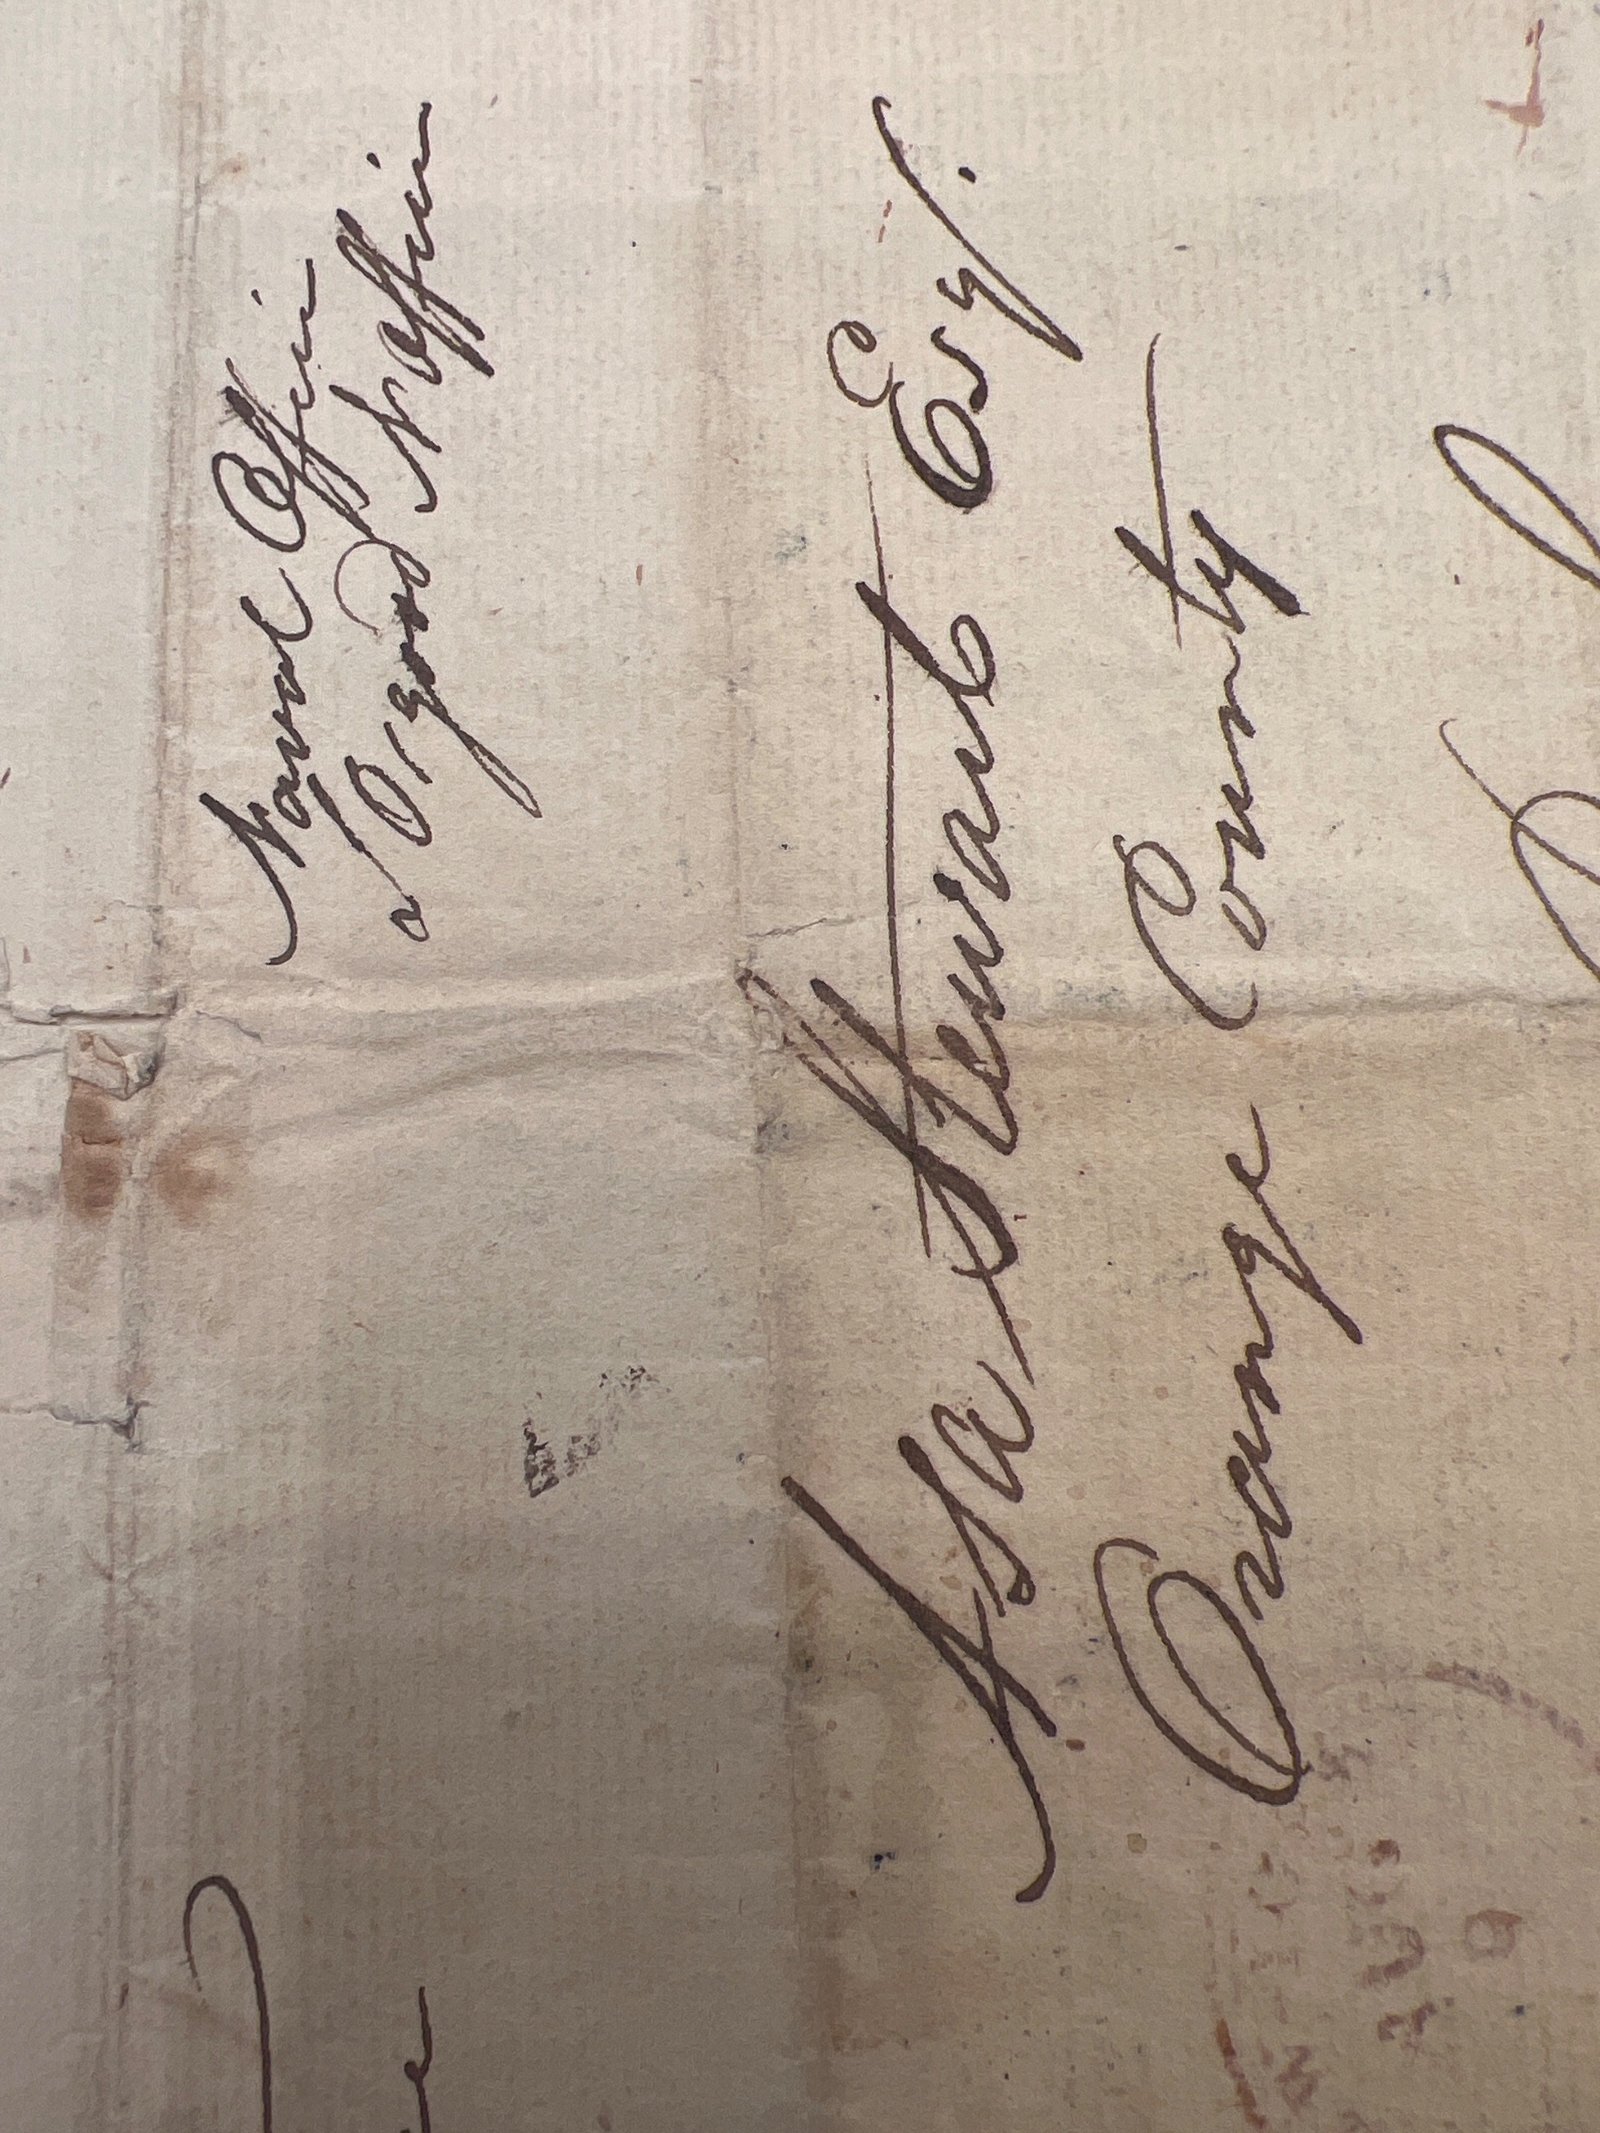 Naval Office
S Osgood N Office
Asa Stewart Esq.
Orange County